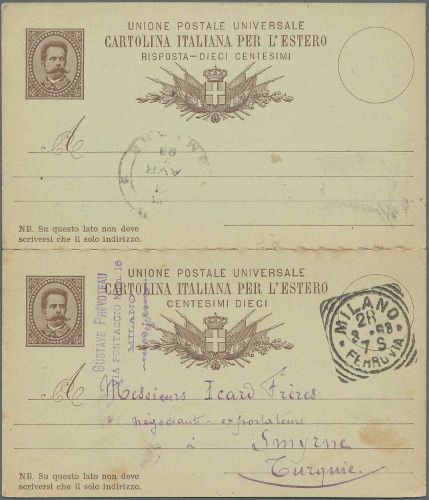 UNIONE POSTALE UNIVERSALE
CARTOLINA ITALIANA PER L'ESTERO
RISPOSTA-DIECI CENTESIMI
A
SMYRNE
AVR
NB. Su questo lato non deve
scriversi che il solo indirizzo.
UNIONE POSTALE UNIVERSALE
CARTOLINA ITALIANA PER L'ESTERO
CENTESIMI DIECI
GUSTAVE PRÉVOTEAU
MILANO
MILANO
FERROVIA
A Messieurs Icard Frères
négociants - exportateurs
à Smyrne
Turquie.
NB. Su questo lato non deve
scriversi che il solo indirizzo.